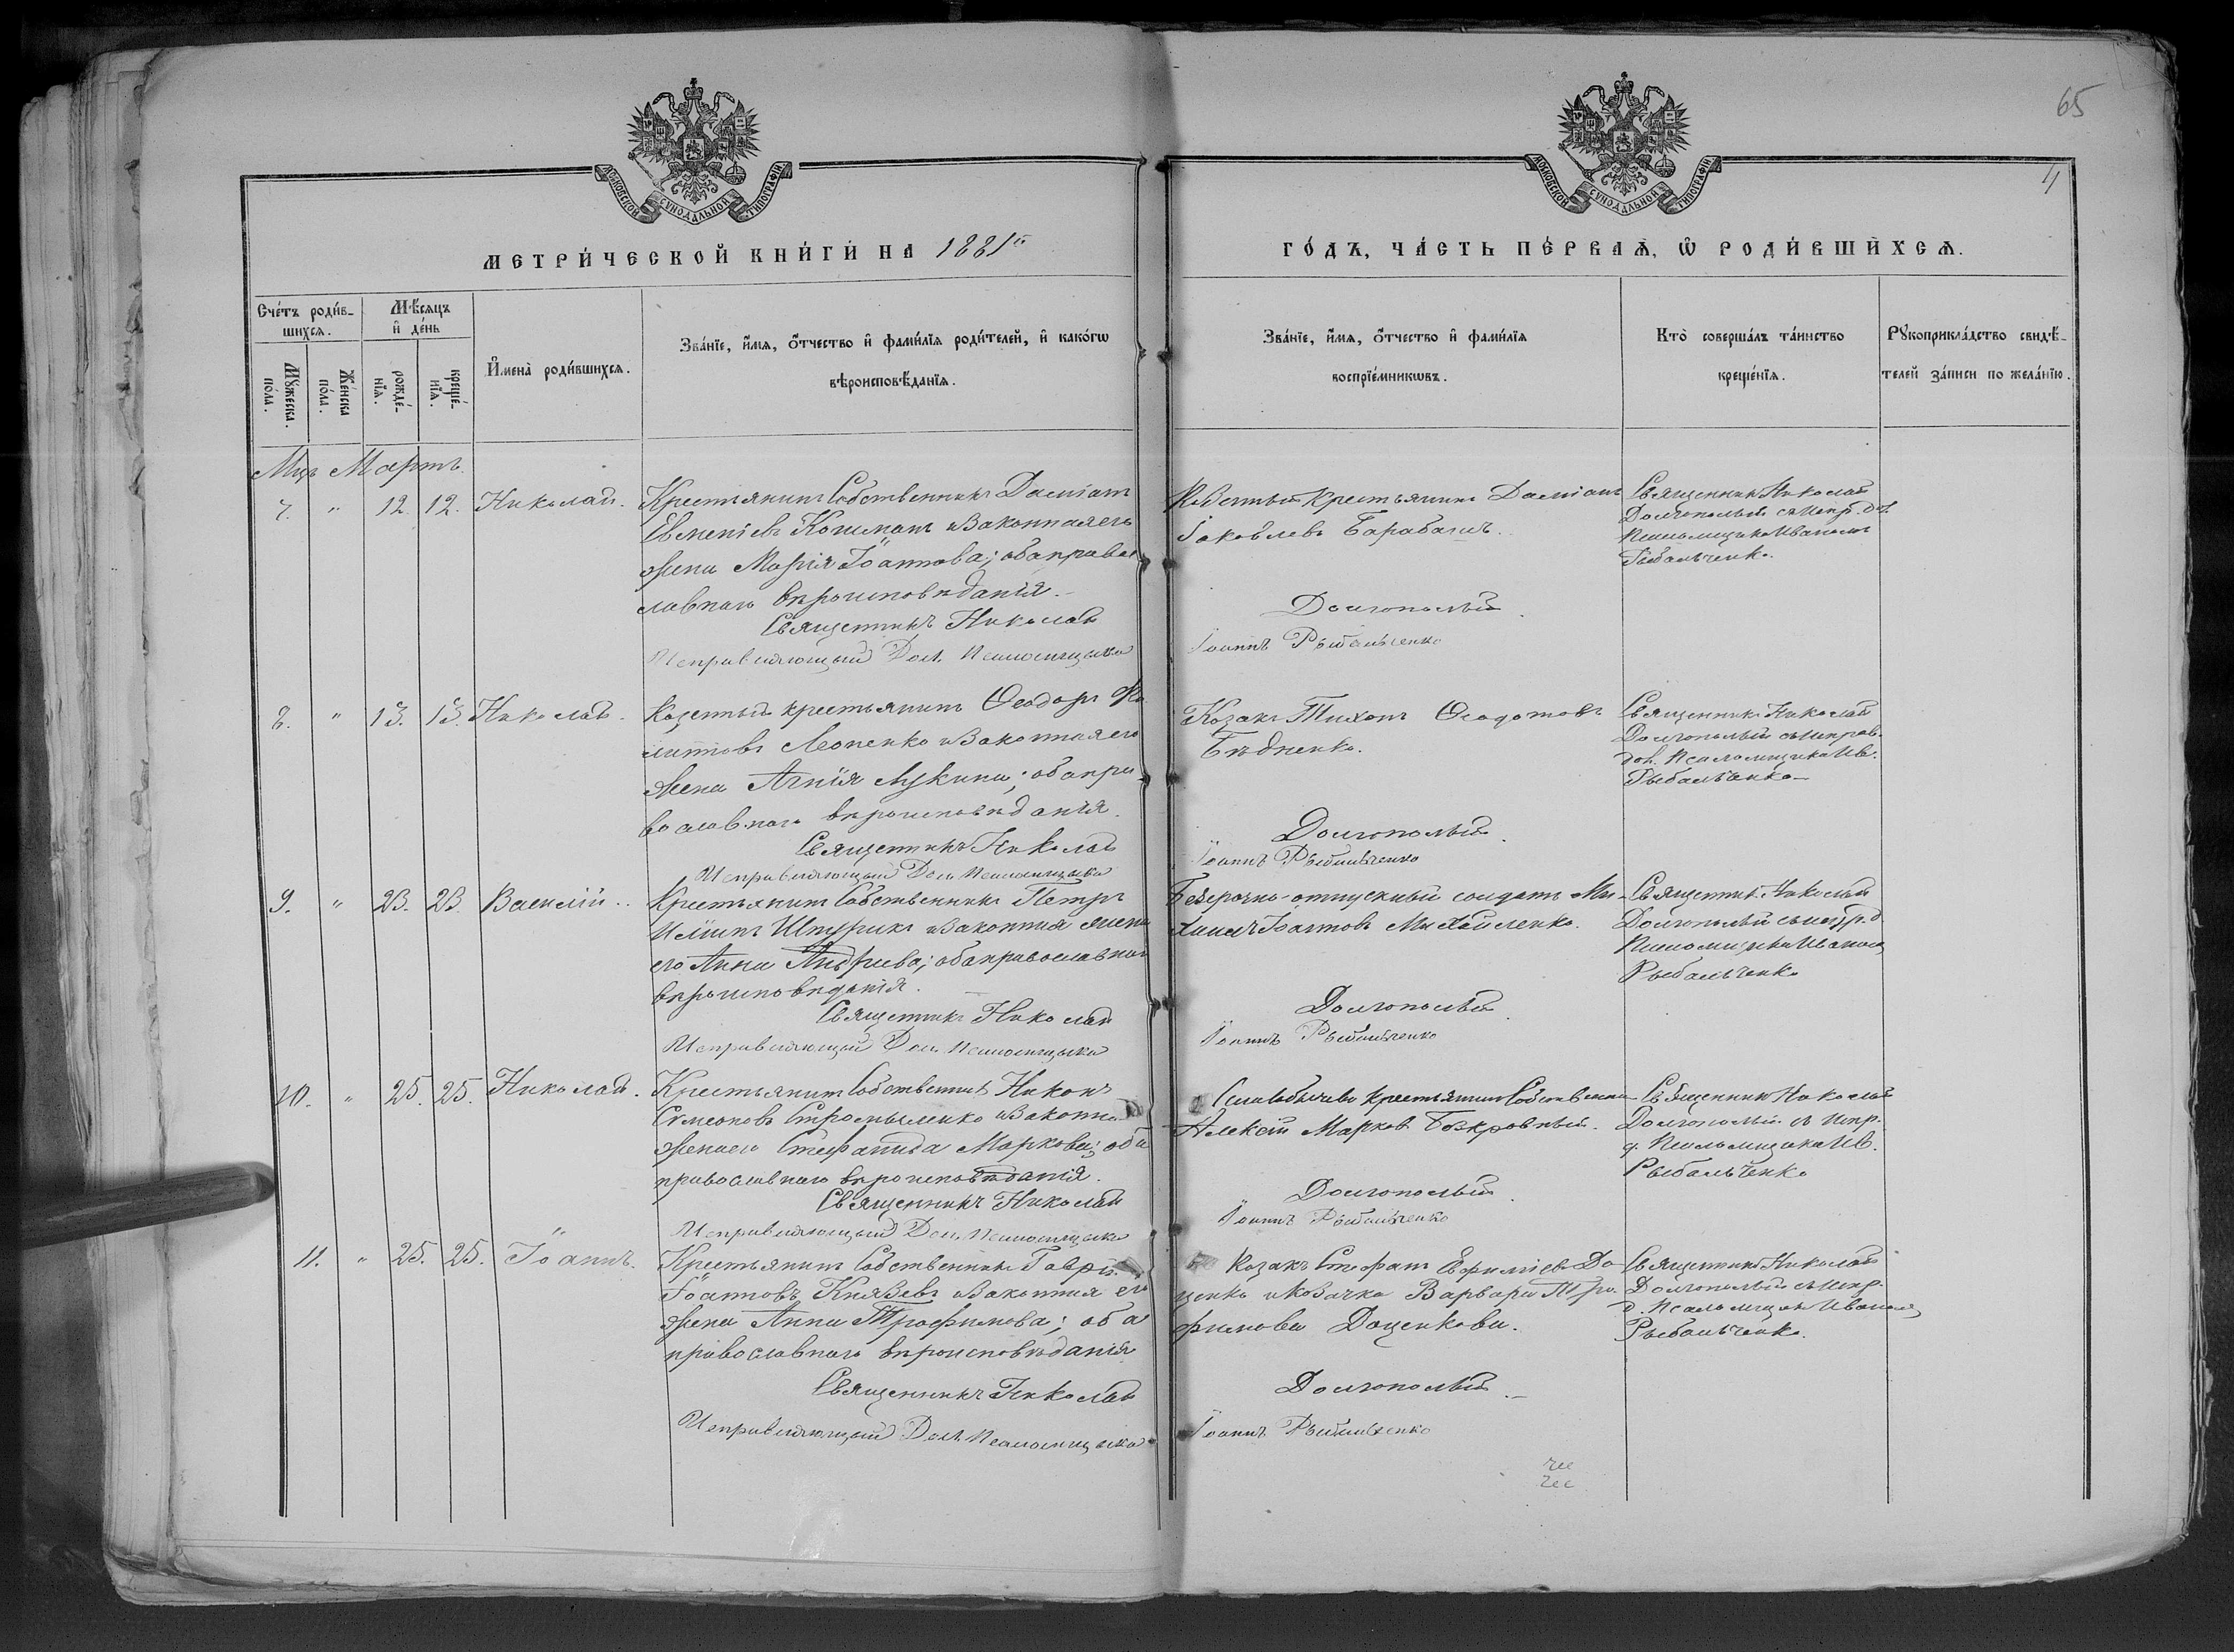 65
4
МОСКОВСКОЙ СУНОДАЛЬНОЙ ТИПОГРАФІИ
МОСКОВСКОЙ СУНОДАЛЬНОЙ ТИПОГРАФІИ
МЕТРИ́ЧЕСКОЙ КНИ́ГИ НА 1881й
ГО́ДЪ, ЧА́СТЬ ПЕ́РВАѦ, Ѡ РОДИ́ВШИХСѦ.
Сче́тъ роди́в-
шихсѧ.
Мꙋ́жеска по́ла.
Же́нска по́ла.
Мѣ́сѧцъ
и҆ де́нь
рожде́-
нїѧ.
креще́-
нїѧ.
И҆мена̀ роди́вшихсѧ.
Зва́нїе, и҆́мѧ, ѻ҆́тчество и҆ фами́лїѧ роди́телей, и҆ како́гѡ
вѣроисповѣ́данїѧ.
Зва́нїе, и҆́мѧ, ѻ҆́тчество и҆ фами́лїѧ
воспрїе́мникѡвъ.
Кто̀ соверша́лъ та́инство
креще́нїѧ.
Рꙋкоприкла́дство свидѣ́-
телей за́писи по жела́нїю.
Мцъ Мартъ.
7. " 12. 12. Николай.
Крестьянинъ Собственникъ Даміанъ
Евменіевъ Кошманъ и законная его
жена Марія Іоаннова; оба право
славнаго вѣроисповѣданія.
Священникъ Николай
Исправляющій Дол. Псаломщика
крестьянинъ Даміанъ
Іаковлевъ Барабашъ.
Долгополый
Іоаннъ Рыбальченко
Священникъ Николай
Долгополый съ испр. дол.
Псаломщика Иваномъ
Рыбальченко.
8. " 13. 13. Николай.
Казенный крестьянинъ Ѳеодоръ
Леоненко и законная его
жена Агнія Лукина; оба пра
вославнаго вѣроисповѣданія.
Священникъ Николай
Исправляющій Дол. Псаломщика
Козакъ Тихонъ Ѳеодотовъ
Бѣдненко.
Долгополый
Іоаннъ Рыбальченко
Священникъ Николай
Долгополый съ исправ.
дол. Псаломщика Ив.
Рыбальченко
9. " 23. 23. Василій.
Крестьянинъ Собственникъ Петръ
и законная жена
его Анна Андреева; оба православнаго
вѣроисповѣданія.
Священникъ Николай
Исправляющій Дол. Псаломщика
Безсрочно-отпускный солдатъ Ми-
хаилъ Іоанновъ Михайленко.
Долгополый
Іоаннъ Рыбальченко
Священникъ Николай
Долгополый съ испр. д.
Псаломщика Иваномъ
Рыбальченко
10. " 25. 25. Николай.
Крестьянинъ Собственникъ Никонъ
Симеоновъ и законная
жена его Стефанида Маркова; оба
православнаго вѣроисповѣданія.
Священникъ Николай
Исправляющій Дол. Псаломщика
крестьянинъ Собственникъ
Алексѣй Марковъ
Долгополый
Іоаннъ Рыбальченко
Священникъ Николай
Долгополый съ испр.
д. Псаломщика Ив.
Рыбальченко
11. " 25. 25. Іоаннъ.
Крестьянинъ Собственникъ Гавріилъ
Іоанновъ Князевъ и законная его
жена Анна Трофимова; оба
православнаго вѣроисповѣданія
Священникъ Николай
Исправляющій Дол. Псаломщика
Козакъ Стефанъ Ефиміевъ До-
ценко и козачка Варвара Тро-
фимова Доценкова.
Долгополый
Іоаннъ Рыбальченко
Священникъ Николай
Долгополый съ испр.
д. Псаломщика Иваномъ
Рыбальченко.